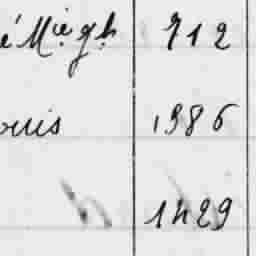 é Mie gh 712
ouis 1986
1429